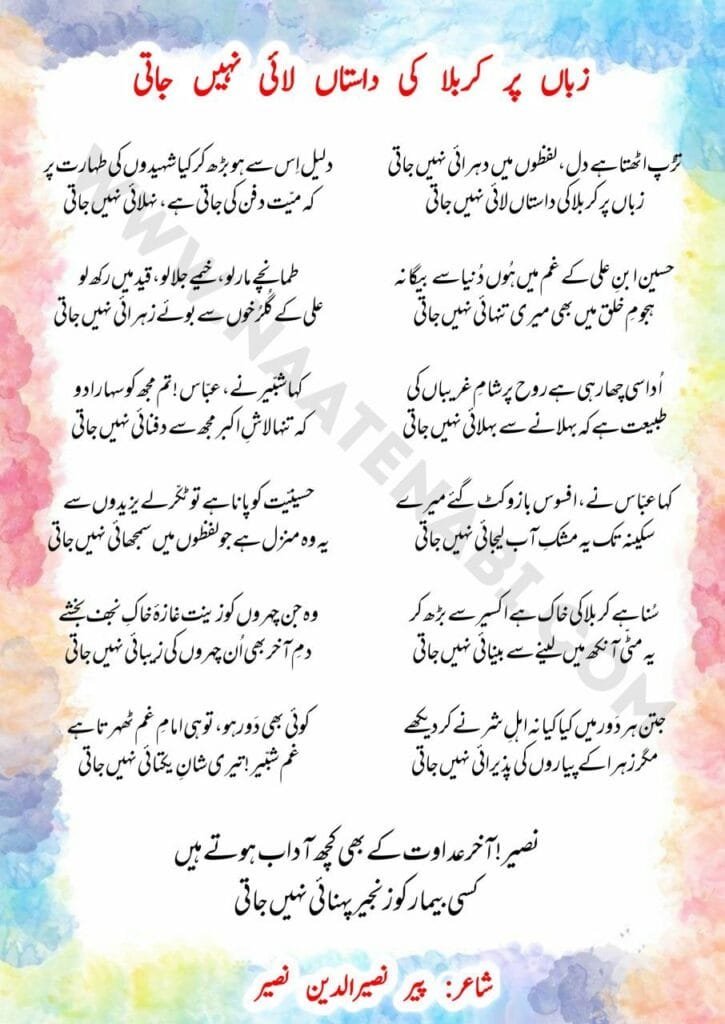 زباں پر کربلا کی داستاں لائی نہیں جاتی
تڑپ اٹھتا ہے دل، لفظوں میں دہرائی نہیں جاتی
زباں پر کربلا کی داستاں لائی نہیں جاتی
دلیل اِس سے ہو بڑھ کر کیا شہیدوں کی طہارت پر
کہ میّت دفن کی جاتی ہے، نہلائی نہیں جاتی
حسین ابنِ علی کے غم میں ہُوں دُنیا سے بیگانہ
ہجومِ خلق میں بھی میری تنہائی نہیں جاتی
طمانچے مار لو، خیمے جلا لو، قید میں رکھ لو
علی کے گُلرُخوں سے بوئے زہرائی نہیں جاتی
اُداسی چھا رہی ہے روح پر شامِ غریباں کی
طبیعت ہے کہ بہلانے سے بہلائی نہیں جاتی
کہا شبّیر نے، عبّاس! تم مجھ کو سہارا دو
کہ تنہا لاشِ اکبر مجھ سے دفنائی نہیں جاتی
کہا عبّاس نے، افسوس بازو کٹ گئے میرے
سکینہ تک یہ مشکِ آب لیجائی نہیں جاتی
حسینیّت کو پانا ہے تو ٹکّر لے یزیدوں سے
یہ وہ منزل ہے جو لفظوں میں سمجھائی نہیں جاتی
سُنا ہے کربلا کی خاک ہے اکسیر سے بڑھ کر
یہ مٹی آنکھ میں لینے سے بینائی نہیں جاتی
وہ جن چہروں کو زینت غازۂ خاکِ نجف بخشے
دمِ آخر بھی اُن چہروں کی زیبائی نہیں جاتی
جتن ہر دَور میں کیا کیا نہ اہلِ شر نے کر دیکھے
مگر زہرا کے پیاروں کی پذیرائی نہیں جاتی
کوئی بھی دَور ہو، تو ہی امامِ غم ٹھہرتا ہے
غمِ شبّیر! تیری شانِ یکتائی نہیں جاتی
نصیر! آخر عداوت کے بھی کچھ آداب ہوتے ہیں
کسی بیمار کو زنجیر پہنائی نہیں جاتی
شاعر: پیر نصیرالدین نصیر
WWW.NAATENABI.COM